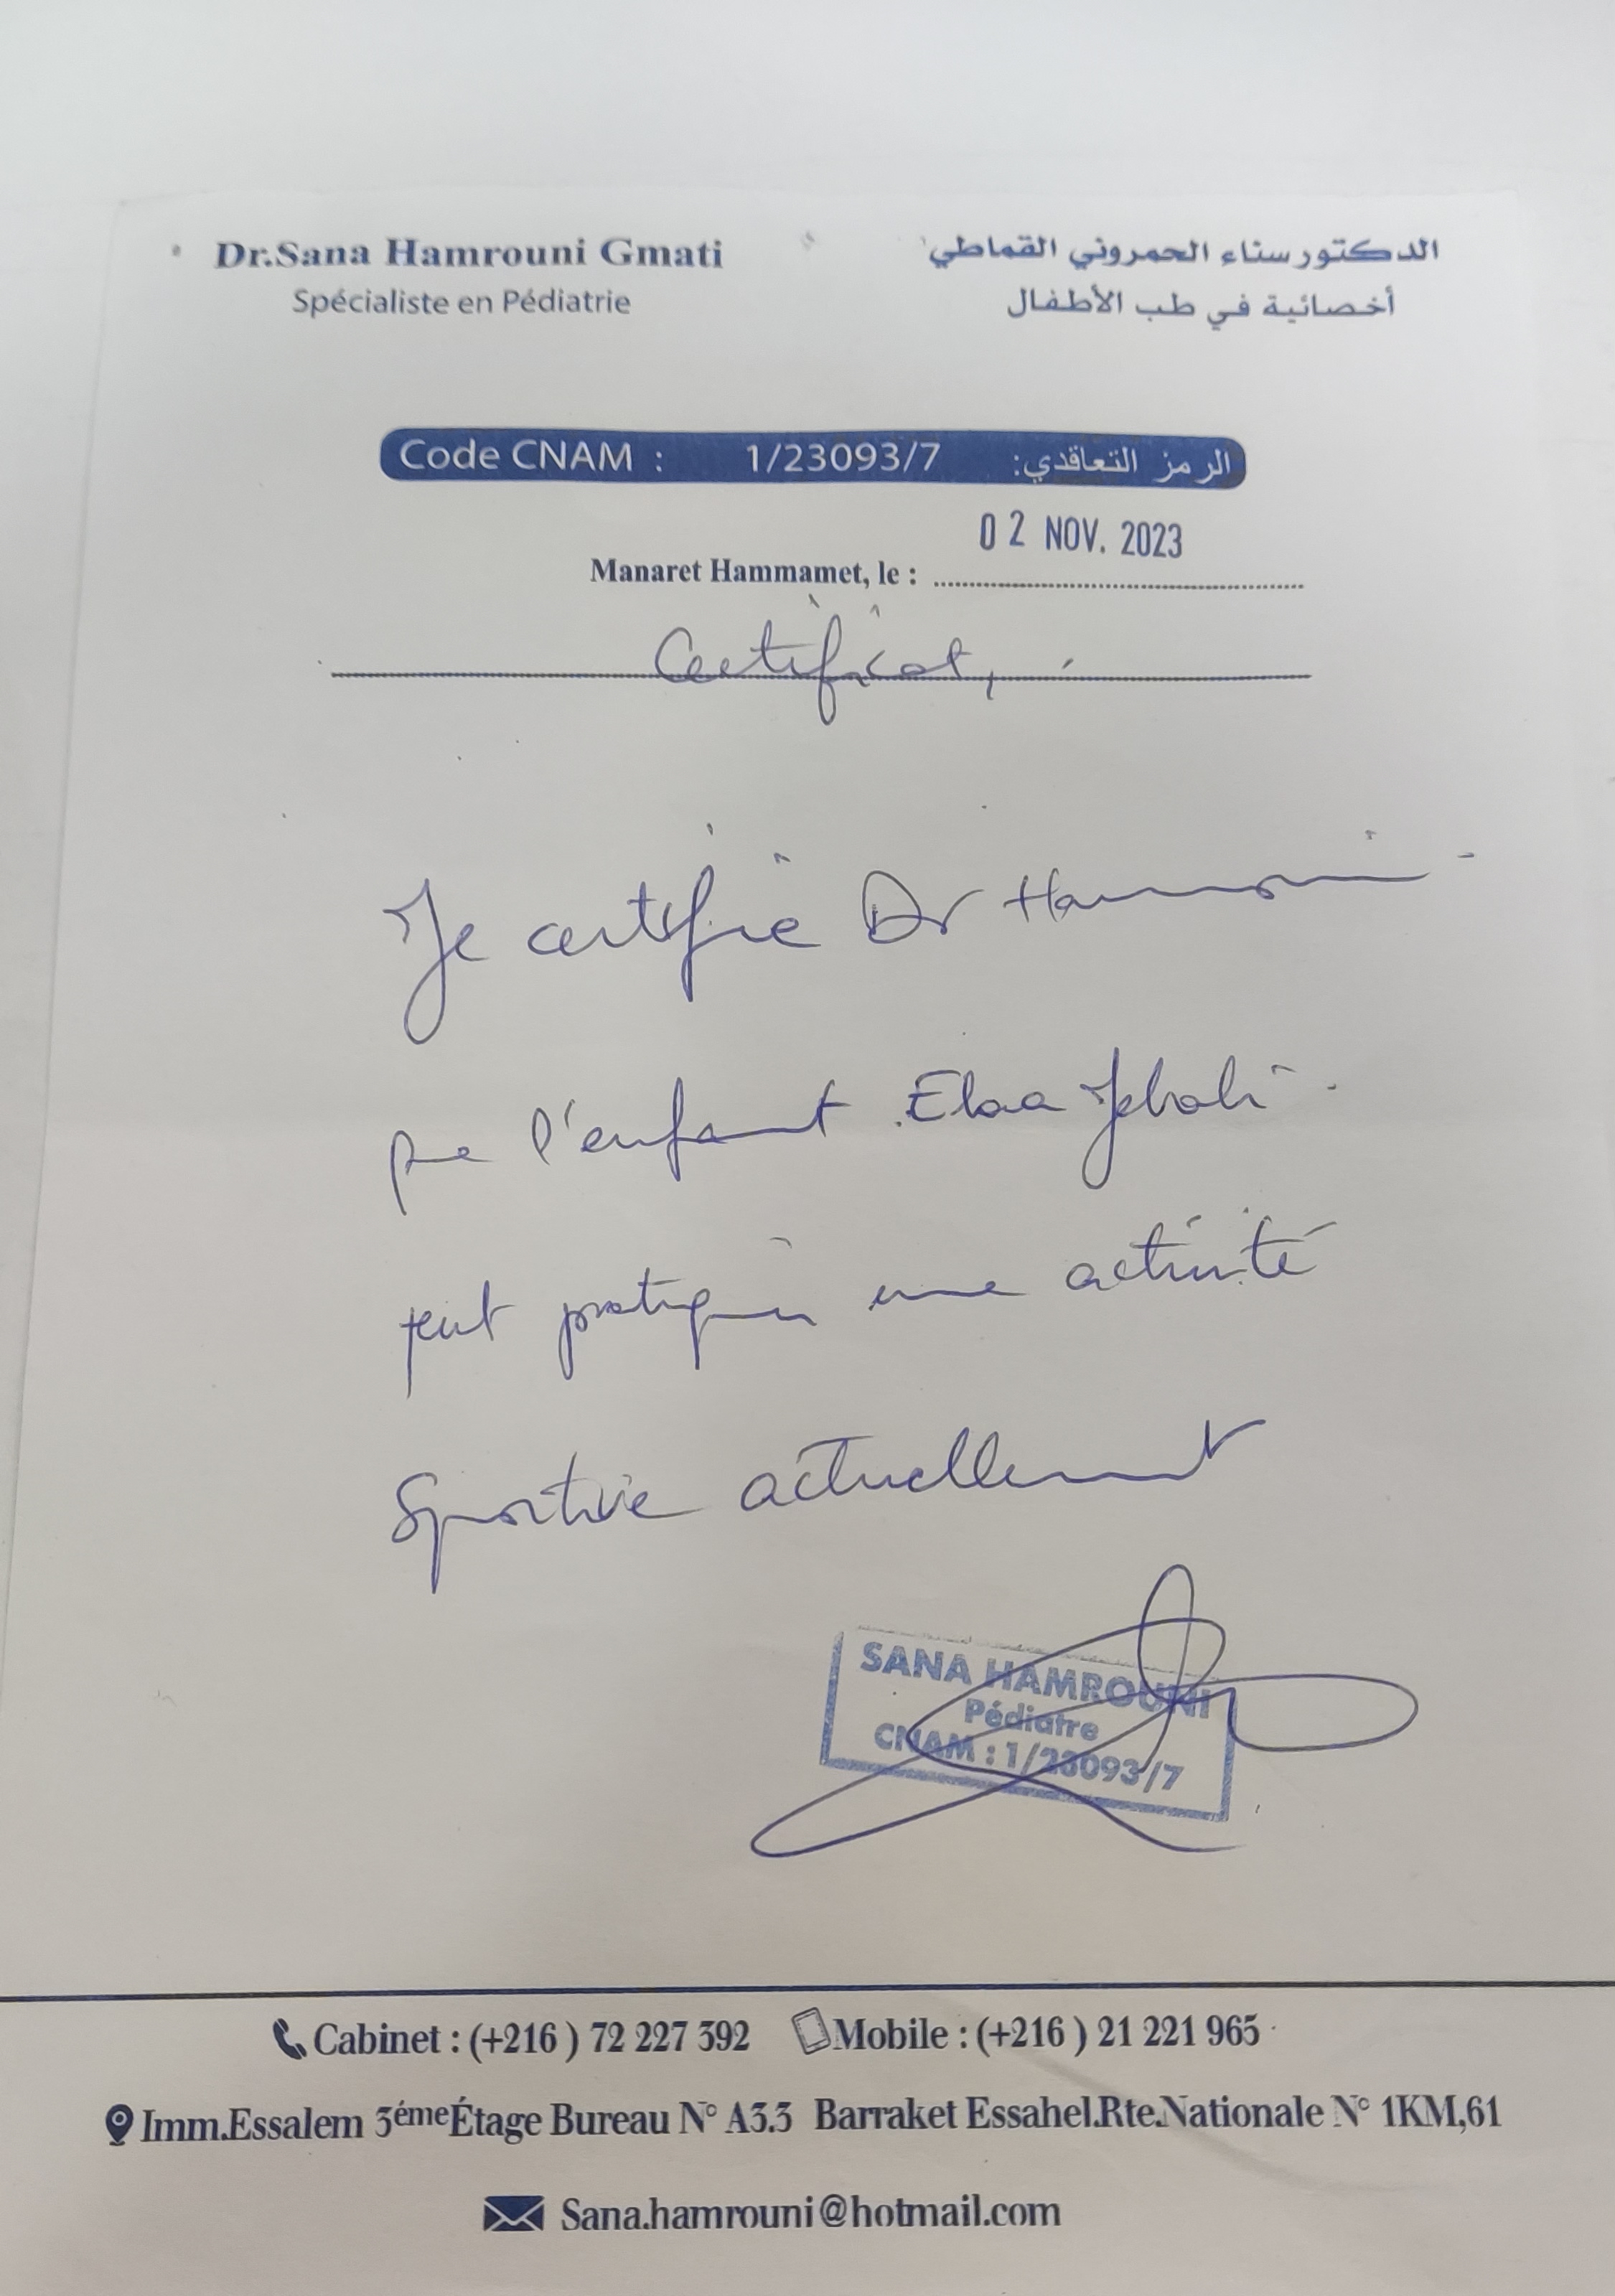 Dr.Sana Hamrouni Gmati
Spécialiste en Pédiatrie
الدكتور سناء الحمروني القماطي
أخصائية في طب الأطفال
Code CNAM : 1/23093/7 الرمز التعاقدي:
02 NOV. 2023
Manaret Hammamet, le :
Certificat,
Je certifie Dr Hamrouni
que l'enfant Elaa Jebali
peut pratiquer une activité
Sportive actuellement
SANA HAMROUNI
Pédiatre
CNAM : 1/23093/7
Cabinet : (+216 ) 72 227 392 Mobile : (+216 ) 21 221 965
Imm.Essalem 3émeÉtage Bureau N° A3.3 Barraket Essahel.Rte.Nationale N° 1KM,61
Sana.hamrouni@hotmail.com